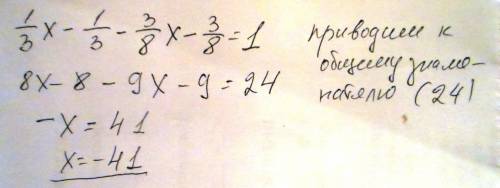 1/3 x - 1/3 - 3/8 x - 3/8 = 1
8x - 8 - 9x - 9 = 24
-x = 41
x = -41
приводим к
общему знаме-
нателю (24)